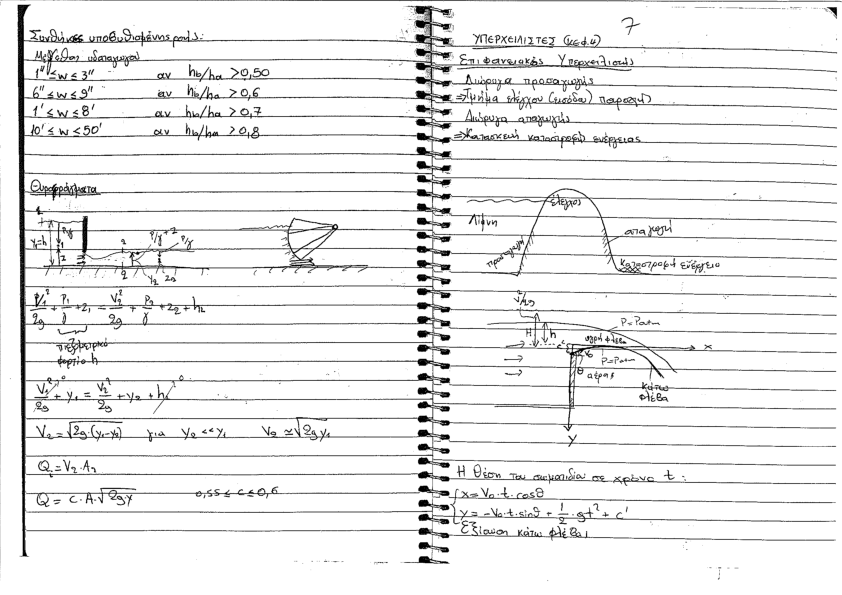 Συνθήκες υποβυθισμένης ροής:
Μέγεθος υδαταγωγού
1" ≤ w ≤ 3" αν hb/ha > 0,50
6" ≤ w ≤ 9" αν hb/ha > 0,6
1' ≤ w ≤ 8' αν hb/ha > 0,7
10' ≤ w ≤ 50' αν hb/ha > 0,8
Θυροφράγματα
y₁=h
P₁/γ
z
P/γ + z
P/γ
y₂
2g
V₁²/2g + P₁/γ + z₁ = V₂²/2g + P₂/γ + z₂ + h₂
πιεζομετρικό
φορτίο h
V₁²/2g + y₁ = V₂²/2g + y₂ + h
V₂ = √2g·(y₁-y₂) για y₂ << y₁ V₂ ≃ √2gy₁
Q = V₂·A₂
Q = c·A·√2gy 0,55 ≤ c ≤ 0,6
7
ΥΠΕΡΧΕΙΛΙΣΤΕΣ (κεφ.4)
Επιφανειακός Υπερχειλιστής
Διώρυγα προσαγωγής
⇒Τμήμα ελέγχου (εισόδου) παροχής
Διώρυγα απαγωγής
⇒Κατασκευή καταστροφής ενέργειας
έλεγχος
Λίμνη
προσαγωγή
απαγωγή
καταστροφή ενέργεια
V²/2g
H
h
P=Patm
υγρή φλέβα
c'
x
P=Patm
θ
αέρας
κάτω
φλέβα
y
Η θέση του σωματιδίου σε χρόνο t:
x = V₀·t·cosθ
y = -V₀·t·sinθ + 1/2·gt² + c'
Εξίσωση κάτω φλέβα,